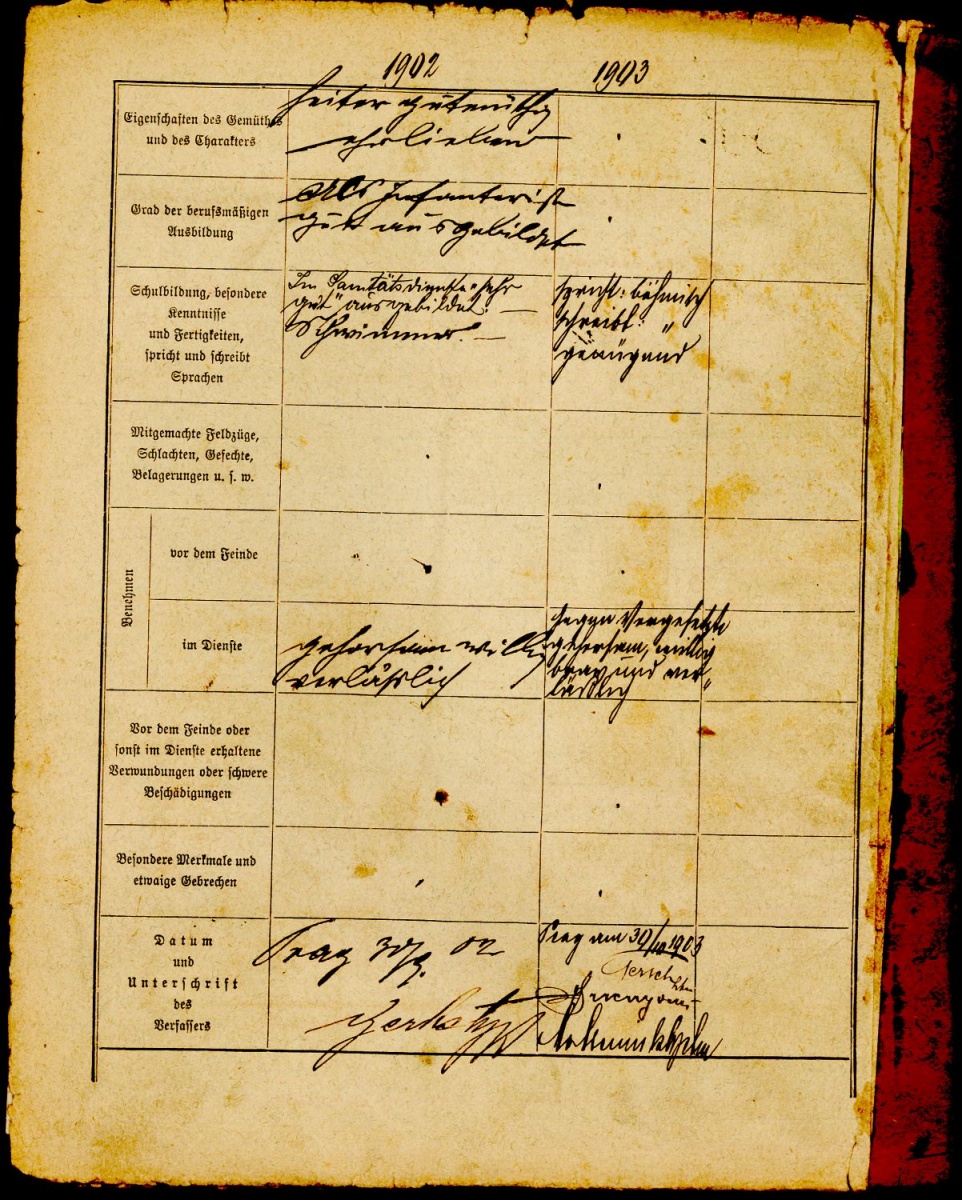 1902 1903
Eigenschaften des Gemüthes
und des Charakters
heiter gutmüthig
ehrliebend
Grad der berufsmäßigen
Ausbildung
Als Infanterist
gut ausgebildet
Schulbildung, besondere
Kenntnisse
und Fertigkeiten,
spricht und schreibt
Sprachen
Im Sanitätsdienste „sehr
gut“ ausgebildet. —
Schwimmer. —
spricht: böhmisch
schreibt: „
genügend
Mitgemachte Feldzüge,
Schlachten, Gefechte,
Belagerungen u. s. w.
Benehmen
vor dem Feinde
im Dienste
gehorsam willig
verläßlich
gegen Vorgesetzte
gehorsam, willig
brav und ver-
läßlich
Vor dem Feinde oder
sonst im Dienste erhaltene
Verwundungen oder schwere
Beschädigungen
Besondere Merkmale und
etwaige Gebrechen
Datum
und
Unterschrift
des
Verfassers
Prag 30/9. 02
Prag am 30/10 1903